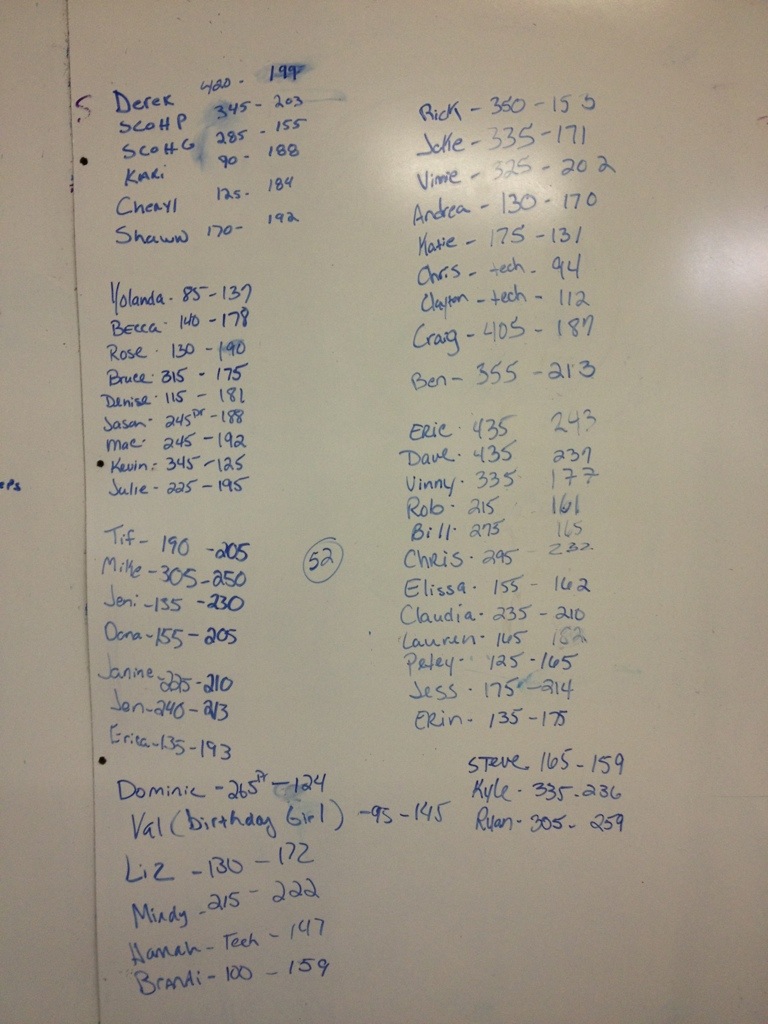 Derek 420 - 199
Scott P 345 - 203
Scott G 285 - 155
Kari 90 - 188
Cheryl 125 - 184
Shawn 170 - 192
Yolanda - 85 - 137
Becca - 140 - 178
Rose - 130 - 190
Bruce - 315 - 175
Denise - 115 - 181
Jason - 245 pr - 188
Mac - 245 - 192
Kevin - 345 - 125
Julie - 225 - 195
Tif - 190 - 205
Mike - 305 - 250
Jeni - 135 - 230
Dana - 155 - 205
Janine - 225 - 210
Jen - 240 - 213
Erica - 135 - 193
Dominic - 265 pr - 124
Val (birthday Girl) - 95 - 145
Liz - 130 - 172
Mindy - 215 - 222
Hannah - Tech - 147
Brandi - 100 - 159
52
Rick - 350 - 155
Jake - 335 - 171
Vinnie - 325 - 202
Andrea - 130 - 170
Katie - 175 - 131
Chris - tech - 94
Clayton - tech - 112
Craig - 405 - 187
Ben - 355 - 213
Eric - 435 243
Dave - 435 237
Vinny - 335 177
Rob - 215 161
Bill - 275 165
Chris - 295 232
Elissa - 155 - 162
Claudia - 235 - 210
Lauren - 165 182
Petey - 125 - 165
Jess - 175 - 214
Erin - 135 - 175
Steve 165 - 159
Kyle - 335 - 236
Ryan - 305 - 259